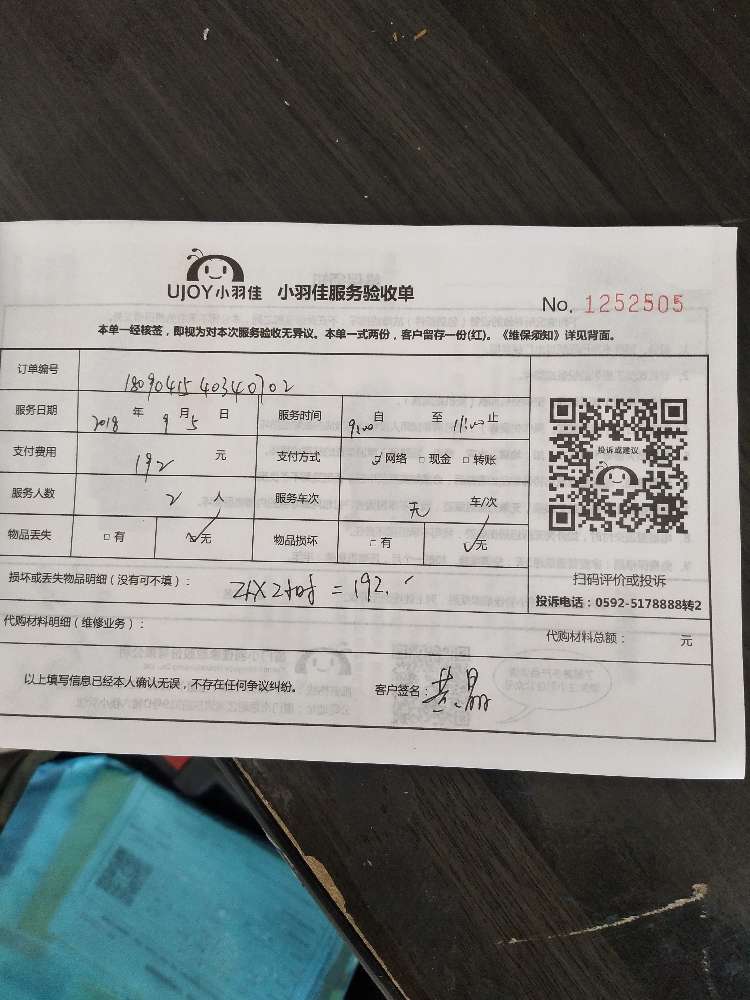 UJOY小羽佳 小羽佳服务验收单 No. 1252505
本单一经核签，即视为对本次服务验收无异议。本单一式两份，客户留存一份(红)。《维保须知》详见背面。
订单编号 1809041540340702
服务日期 2018 年 9 月 5 日 服务时间 自 9:00 至 11:00 止
支付费用 192 元 支付方式 ☑网络 □现金 □转账
投诉或建议
服务人数 2 人 服务车次 无 车/次
物品丢失 □有 ☑无 物品损坏 □有 ☑无
扫码评价或投诉
损坏或丢失物品明细（没有可不填）： 2人X2小时 = 192.
投诉电话：0592-5178888转2
代购材料明细（维修业务）： 代购材料总额： 元
以上填写信息已经本人确认无误，不存在任何争议纠纷。 客户签名：